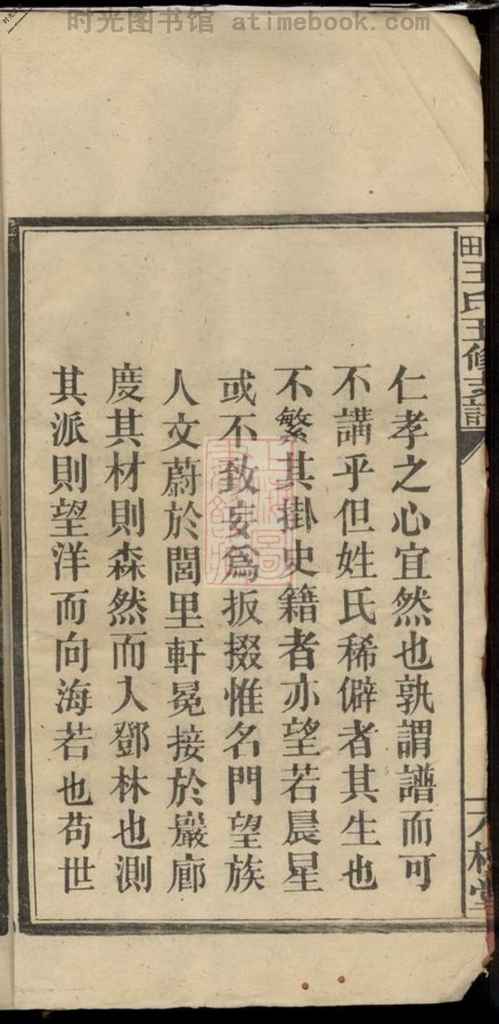 时光图书馆 atimebook.com
田王氏五修支譜
仁孝之心宜然也孰謂譜而可
不講乎但姓氏稀僻者其生也
不繁其掛史籍者亦望若晨星
或不致妄為扳掇惟名門望族
人文蔚於閭里軒冕接於巖廊
度其材則森然而入鄧林也測
其派則望洋而向海若也苟世